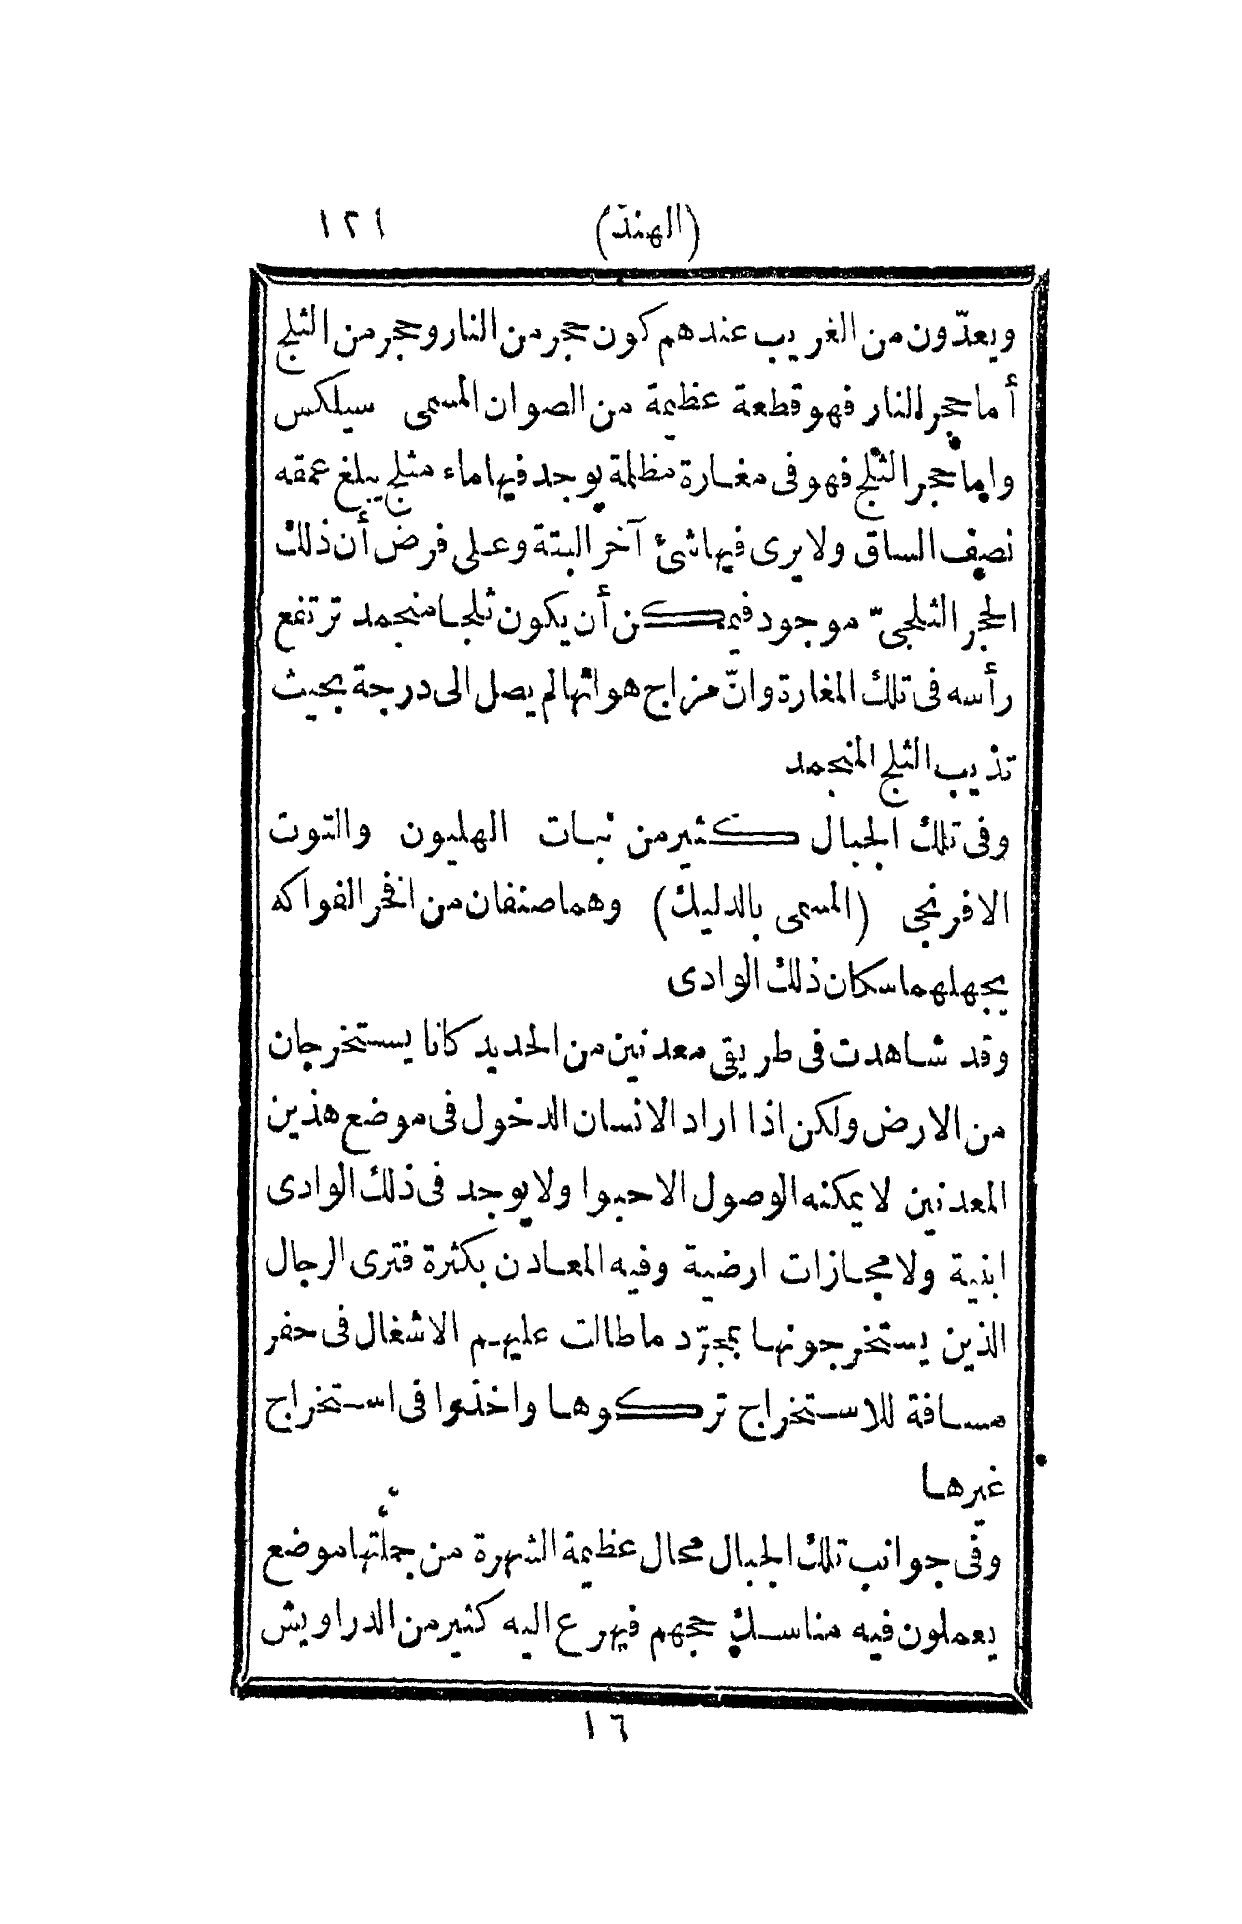 (الهند) ١٢١
ويعدّون من الغريب عندهم كون حجر من النار وحجر من الثلج
أما حجر النار فهو قطعة عظيمة من الصوان المسمى سيلكس
واما حجر الثلج فهو فى مغارة مظلمة يوجد فيها ماء مثلج يبلغ عمقه
نصف الساق ولا يرى فيها شئ آخر البتة وعلى فرض أن ذلك
الحجر الثلجىّ موجود فيمكن أن يكون ثلجا منجمد ترتفع
رأسه فى تلك المغارة وانّ مزاج هوائها لم يصل الى درجة بحيث
تذيب الثلج المنجمد
وفى تلك الجبال كثير من نبات الهليون والتوت
الافرنجى (المسمى بالدليك) وهما صنفان من افخر الفواكه
يجهلهما سكان ذلك الوادى
وقد شاهدت فى طريقى معدنين من الحديد كانا يستخرجان
من الارض ولكن اذا اراد الانسان الدخول فى موضع هذين
المعدنين لا يمكنه الوصول الا حبوا ولا يوجد فى ذلك الوادى
ابنية ولا مجازات ارضية وفيه المعادن بكثرة فترى الرجال
الذين يستخرجونها بمجرّد ما طالت عليهم الاشغال فى حفر
مسافة للاستخراج تركوها واخذوا فى استخراج
غيرها
وفى جوانب تلك الجبال محال عظيمة الشهرة من جملتها موضع
يعملون فيه مناسك حجهم فيهرع اليه كثير من الدراويش
١٦